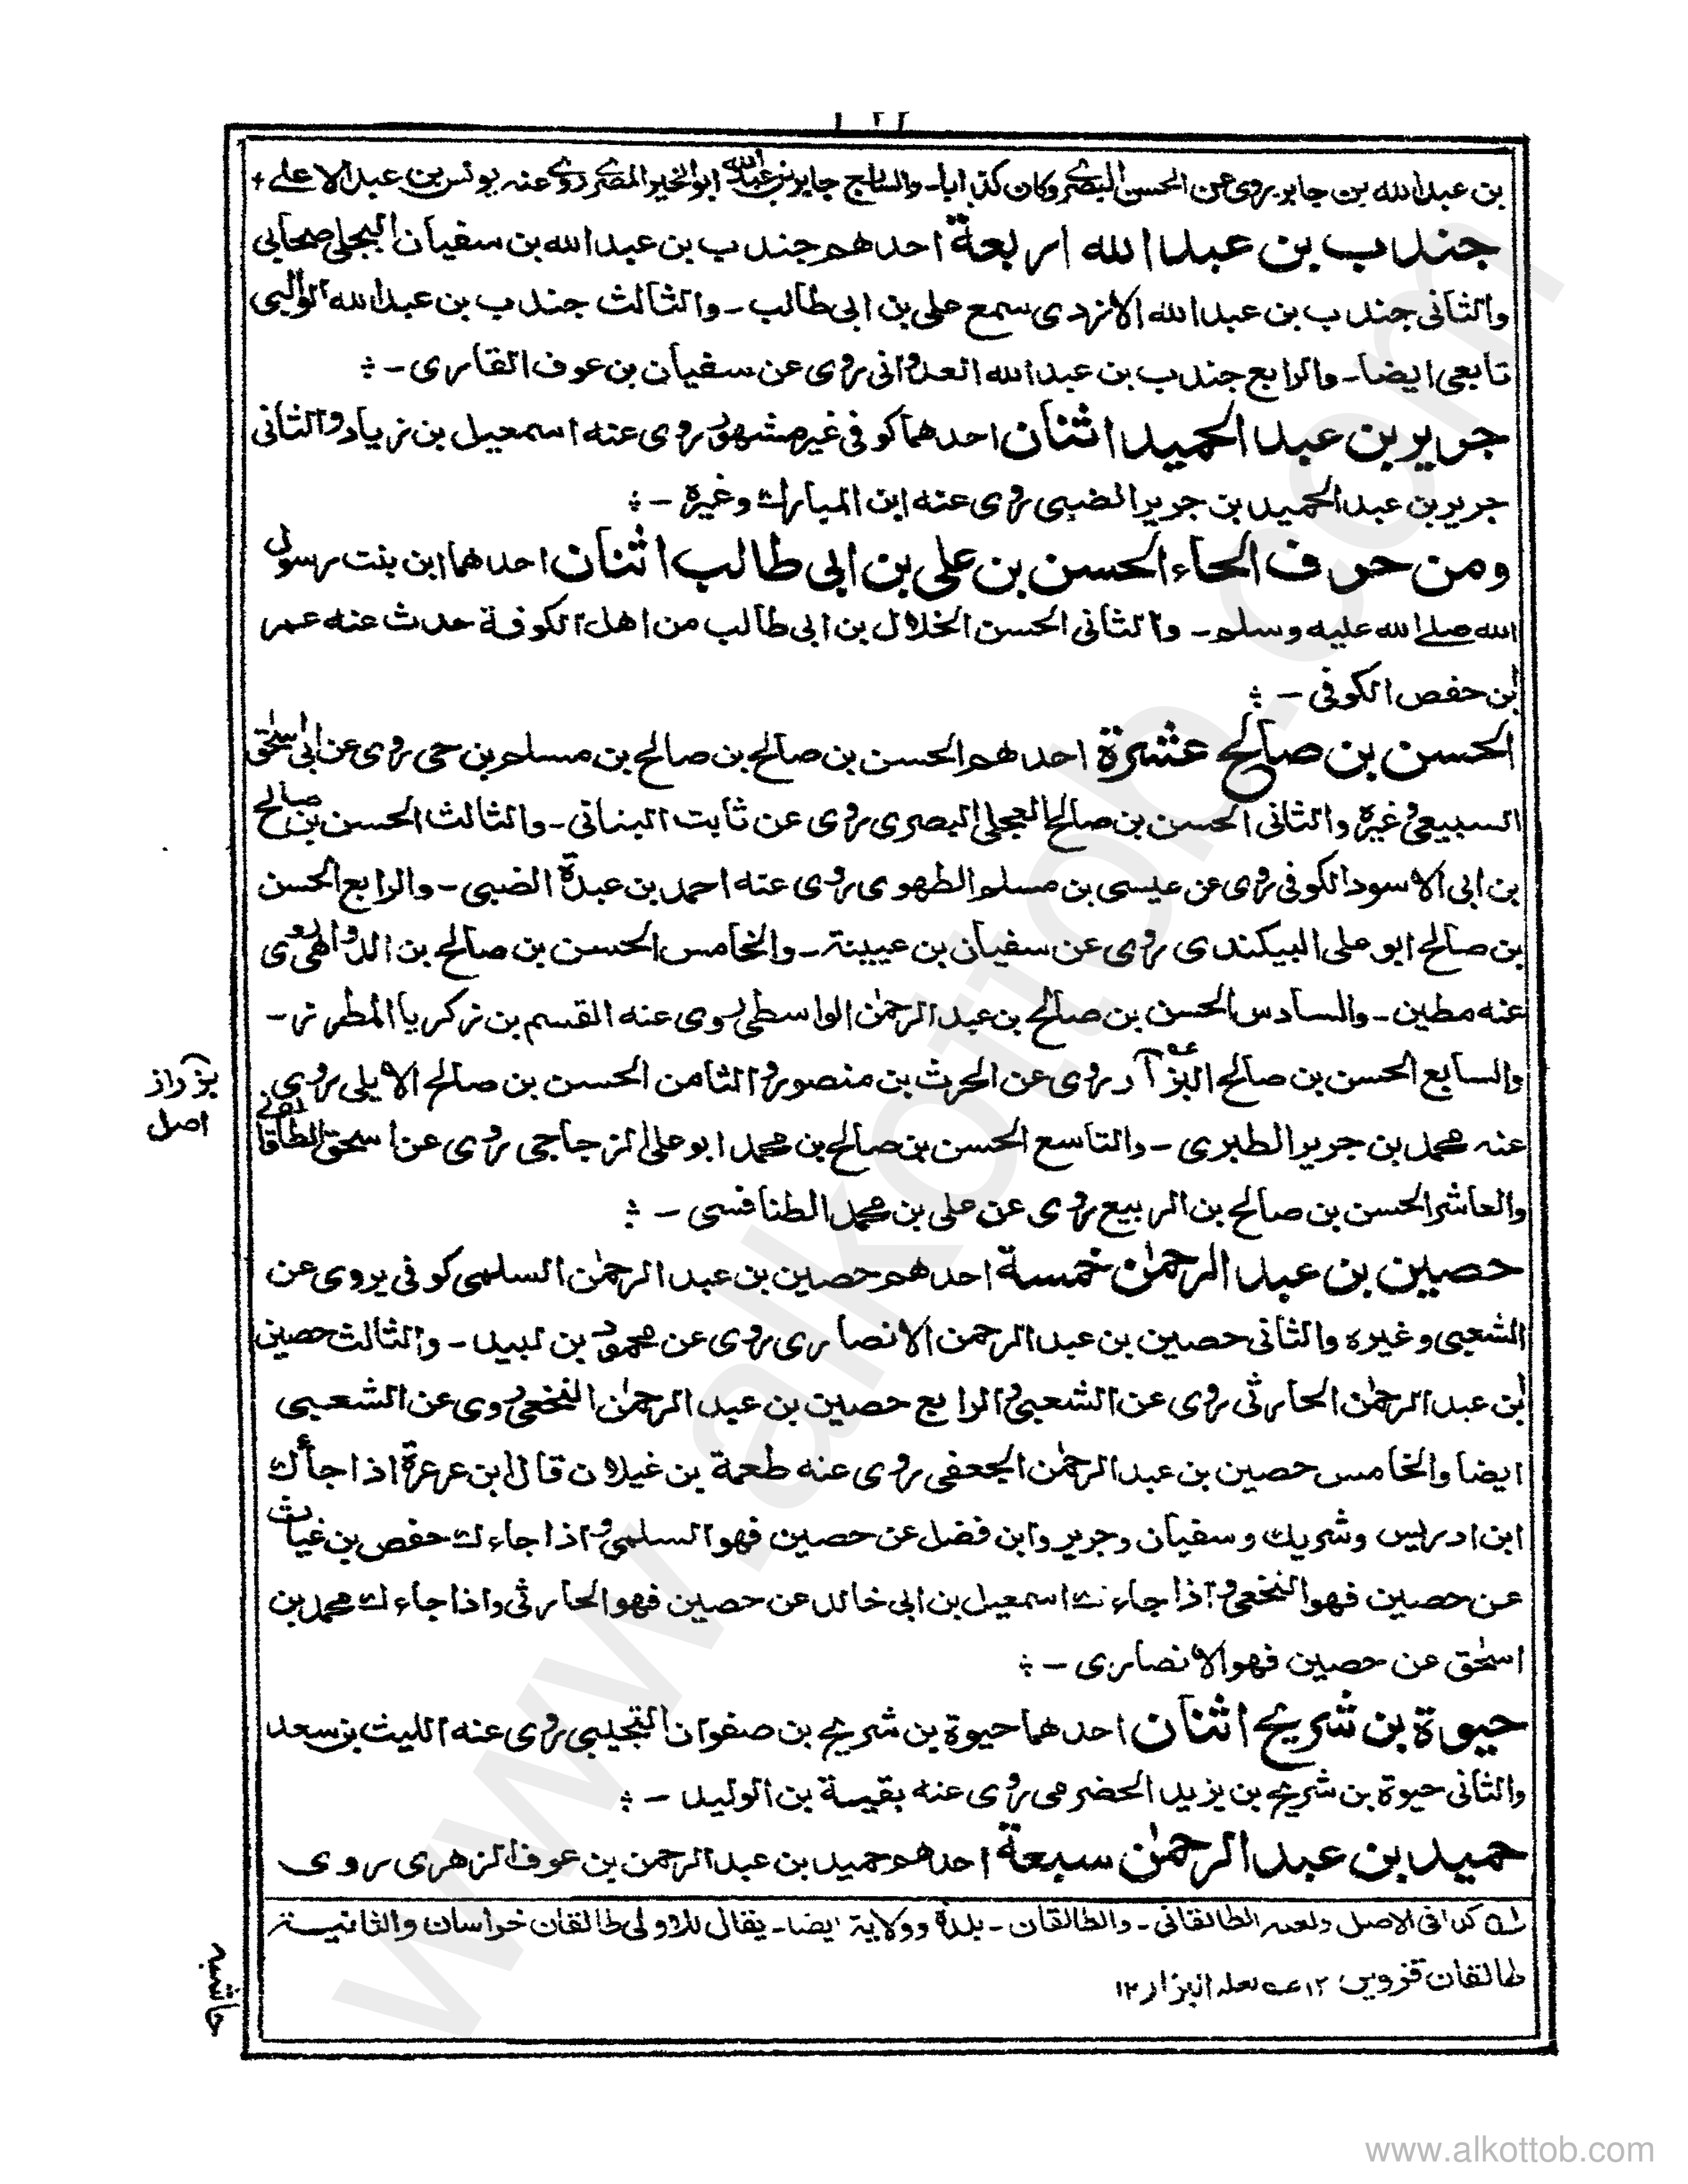 بن عبد الله بن جابر يروى عن الحسن البصرى وكان كذابا - والسابع جابر بن عبد الله ابو الخير المصرى روى عنه يونس بن عبد الاعلى +
جندب بن عبد الله اربعة احدهم جندب بن عبد الله بن سفيان البجلى صحابى
والثانى جندب بن عبد الله الازدى سمع على بن ابى طالب - والثالث جندب بن عبد الله الوالبى
تابعى ايضا - والرابع جندب بن عبد الله العدوانى روى عن سفيان بن عوف القارى - ؞
جرير بن عبد الحميد اثنان احدهما كوفى غير مشهور روى عنه اسمعيل بن زياد والثانى
جرير بن عبد الحميد بن جرير الضبى روى عنه ابن المبارك وغيره - ؞
ومن حرف الحاء الحسن بن على بن ابى طالب اثنان احدهما ابن بنت رسول
الله صلى الله عليه وسلم - والثانى الحسن الخلال بن ابى طالب من اهل الكوفة حدث عنه عمر
بن حفص الكوفى - ؞
الحسن بن صالح عشرة احدهم الحسن بن صالح بن صالح بن مسلم بن حى روى عن ابى اسحٰق
السبيعى وغيره والثانى الحسن بن صالح العجلى البصرى روى عن ثابت البنانى - والثالث الحسن بن صالح
بن ابى الاسود الكوفى روى عن عيسى بن مسلم الطهوى روى عنه احمد بن عبدة الضبى - والرابع الحسن
بن صالح ابو على البيكندى روى عن سفيان بن عيينة - والخامس الحسن بن صالح بن الدواهى روى
عنه مطين - والسادس الحسن بن صالح بن عبد الرحمٰن الواسطى روى عنه القسم بن زكريا المطرز -
والسابع الحسن بن صالح البزار روى عن الحرث بن منصور والثامن الحسن بن صالح الايلى روى
بزواز
اصل
عنه محمد بن جرير الطبرى - والتاسع الحسن بن صالح بن محمد ابو على الزجاجى روى عن اسحق الطاقانى
والعاشر الحسن بن صالح بن الربيع روى عن على بن محمد الطنافسى - ؞
حصين بن عبد الرحمٰن خمسة احدهم حصين بن عبد الرحمٰن السلمى كوفى يروى عن
الشعبى وغيره والثانى حصين بن عبد الرحمن الانصارى روى عن محمود بن لبيد - والثالث حصين
بن عبد الرحمٰن الحارثى روى عن الشعبى والرابع حصين بن عبد الرحمٰن النخعى روى عن الشعبى
ايضا والخامس حصين بن عبد الرحمٰن الجعفى روى عنه طعمة بن غيلان قال ابن عرعرة اذا جاءك
ابن ادريس وشريك وسفيان وجرير وابن فضل عن حصين فهو السلمى واذا جاءك حفص بن غياث
عن حصين فهو النخعى واذا جاءك اسمعيل بن ابى خالد عن حصين فهو الحارثى واذا جاءك محمد بن
اسحٰق عن حصين فهو الانصارى - ؞
حيوة بن شريح اثنان احدهما حيوة بن شريح بن صفوان التجيبى روى عنه الليث بن سعد
والثانى حيوة بن شريح بن يزيد الحضرمى روى عنه بقية بن الوليد - ؞
حميد بن عبد الرحمٰن سبعة احدهم حميد بن عبد الرحمن بن عوف الزهرى روى
كذا فى الاصل ولعله الطالقانى - والطالقان - بلدة وولاية ايضا - يقال للاولى طالقان خراسان والثانية
طالقان قزوين ١٢ عه لعله البزار ١٢
حاشبه
www.alkottob.com
www.alkottob.com